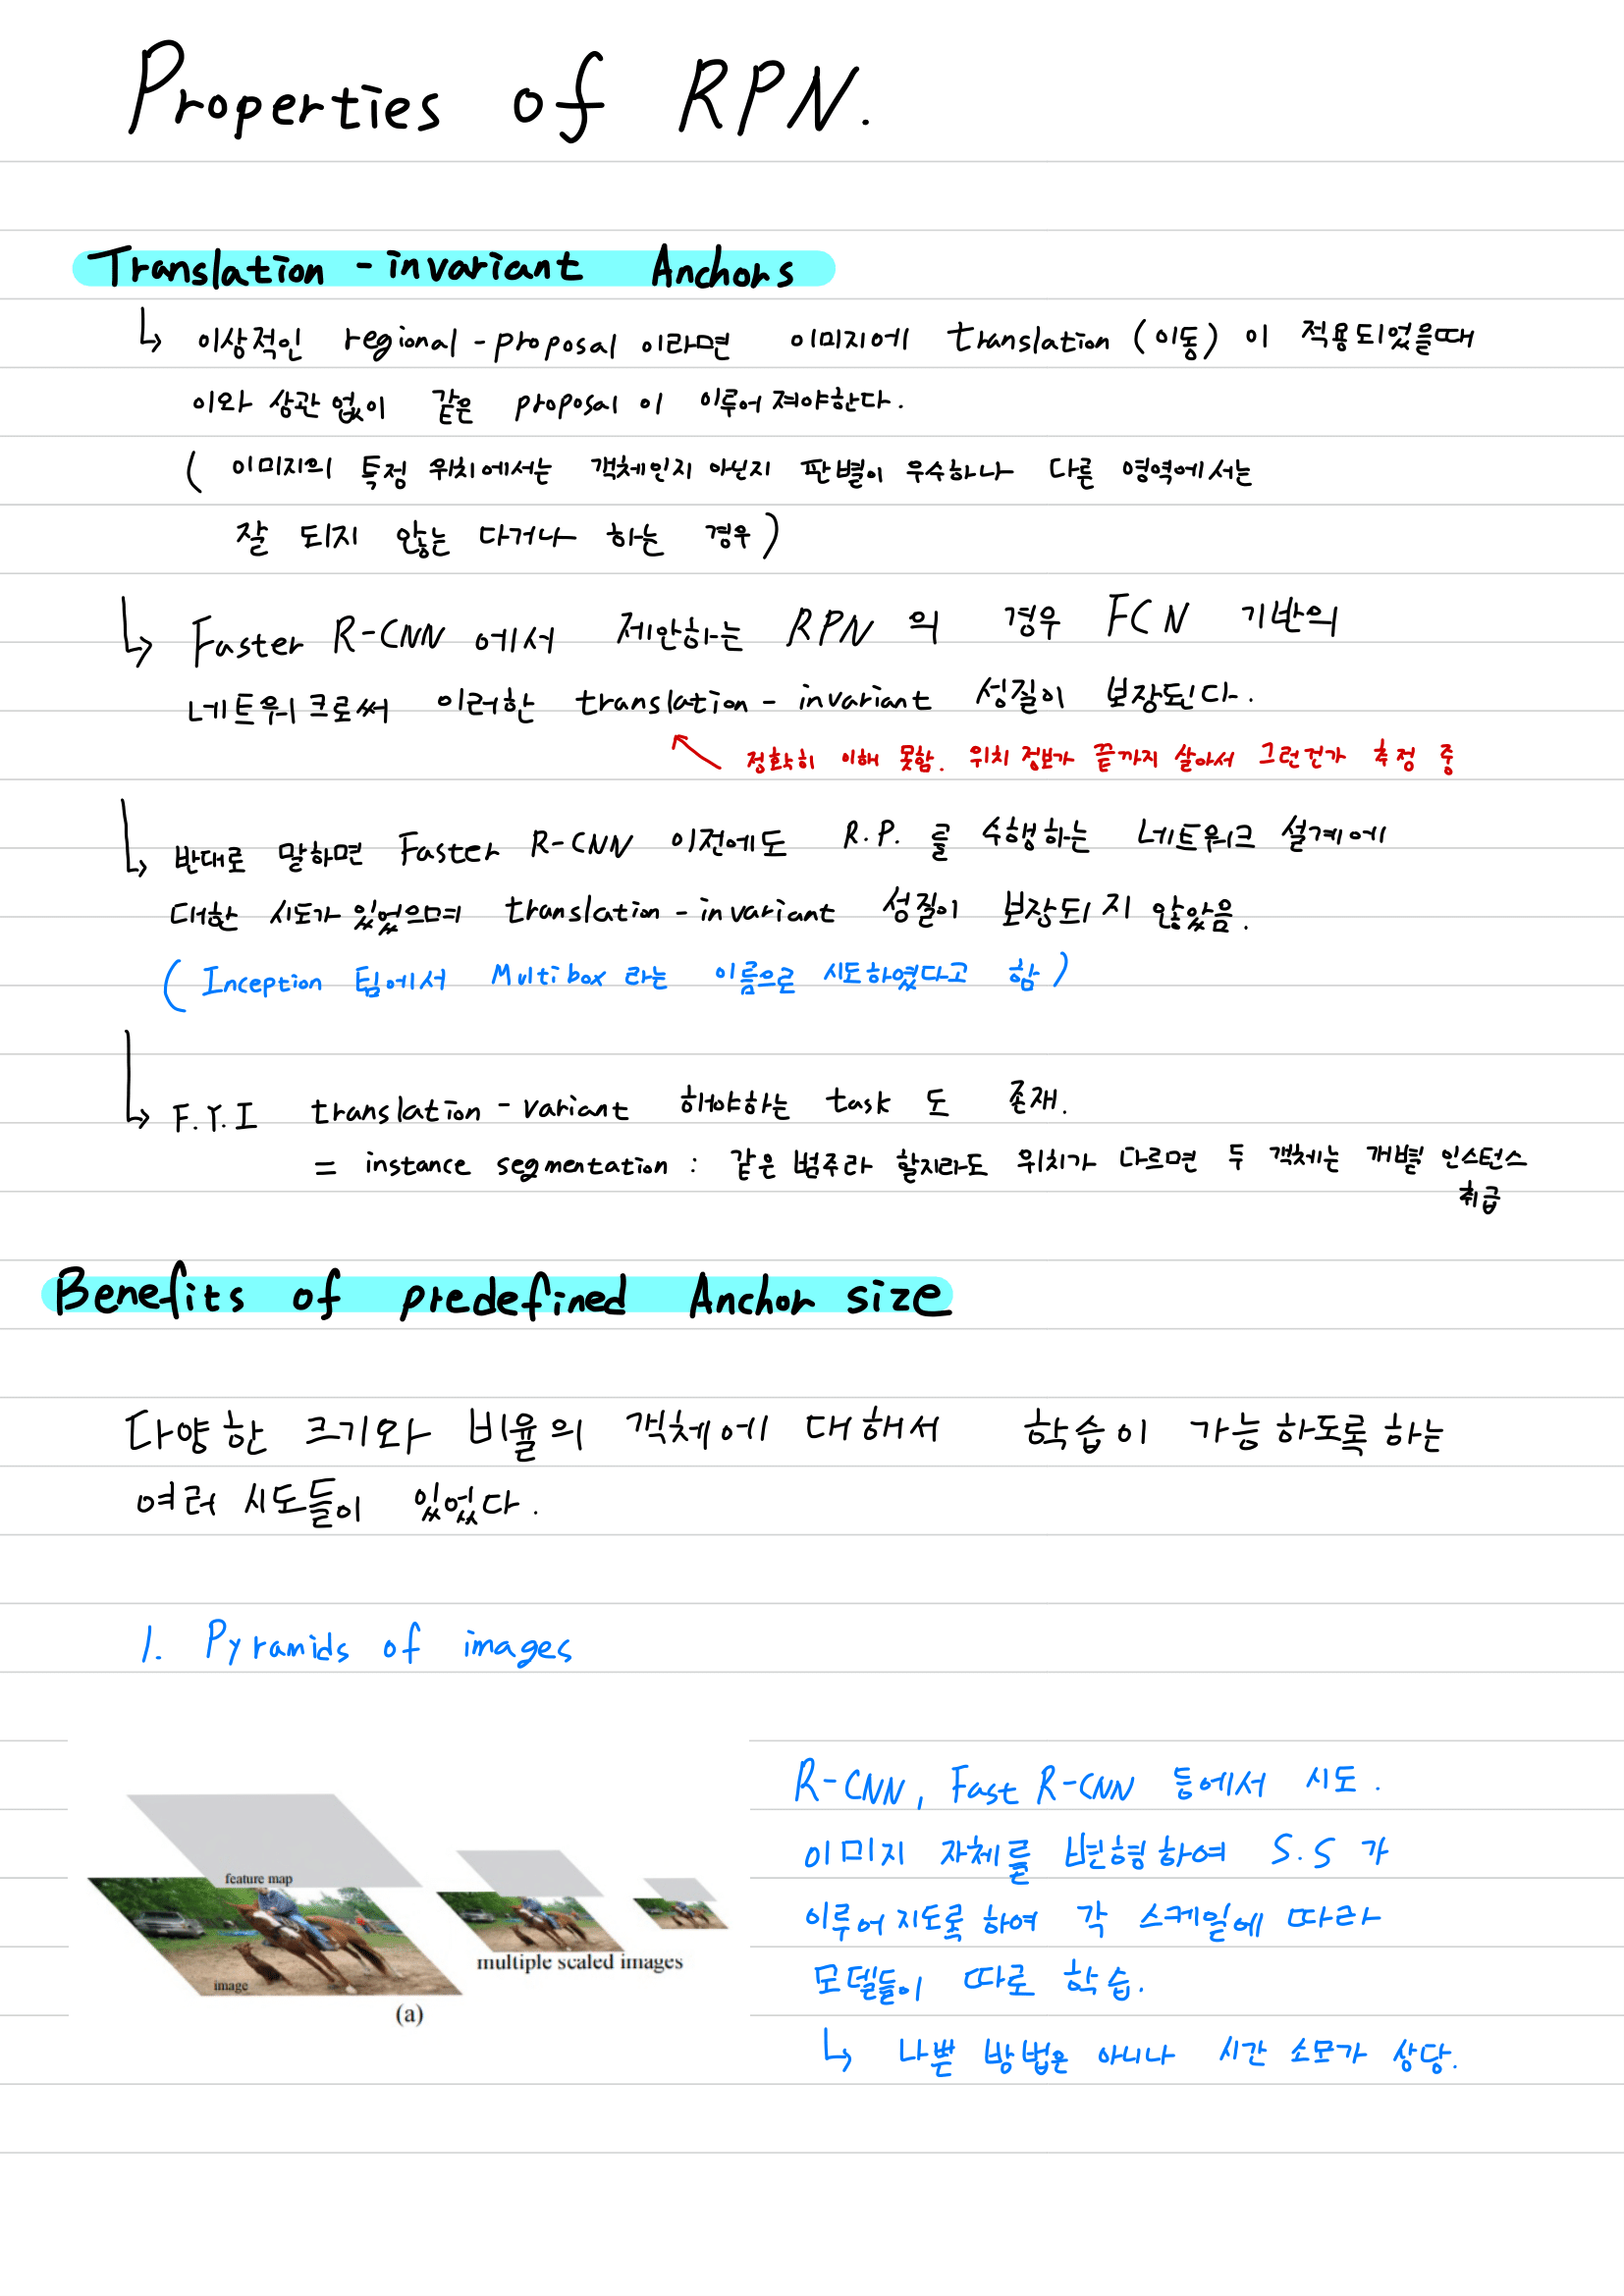 Properties of RPN.
Translation - invariant Anchors
↳ 이상적인 regional - proposal 이라면 이미지에 translation (이동) 이 적용되었을때
이와 상관 없이 같은 proposal 이 이루어져야한다.
( 이미지의 특정 위치에서는 객체인지 아닌지 판별이 우수하나 다른 영역에서는
잘 되지 않는 다거나 하는 경우 )
↳ Faster R-CNN 에서 제안하는 RPN 의 경우 FCN 기반의
네트워크로써 이러한 translation - invariant 성질이 보장된다.
정확히 이해 못함. 위치 정보가 끝까지 살아서 그런건가 추정 중
↳ 반대로 말하면 Faster R-CNN 이전에도 R.P. 를 수행하는 네트워크 설계에
대한 시도가 있었으며 translation - invariant 성질이 보장되지 않았음.
( Inception 팀에서 Multibox 라는 이름으로 시도하였다고 함 )
↳ F.Y.I translation - variant 해야하는 task 도 존재.
= instance segmentation : 같은 범주라 할지라도 위치가 다르면 두 객체는 개별 인스턴스
취급
Benefits of predefined Anchor size
다양한 크기와 비율의 객체에 대해서 학습이 가능하도록 하는
여러 시도들이 있었다.
1. Pyramids of images
feature map
image
multiple scaled images
(a)
R-CNN, Fast R-CNN 등에서 시도.
이미지 자체를 변형하여 S.S 가
이루어지도록 하여 각 스케일에 따라
모델들이 따로 학습.
↳ 나쁜 방법은 아니나 시간 소모가 상당.